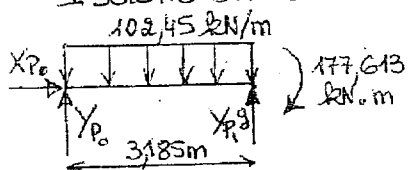 102,45 kN/m
XP₀
177,613
kN.m
YP₀
YP₁ᵍ
3,185m